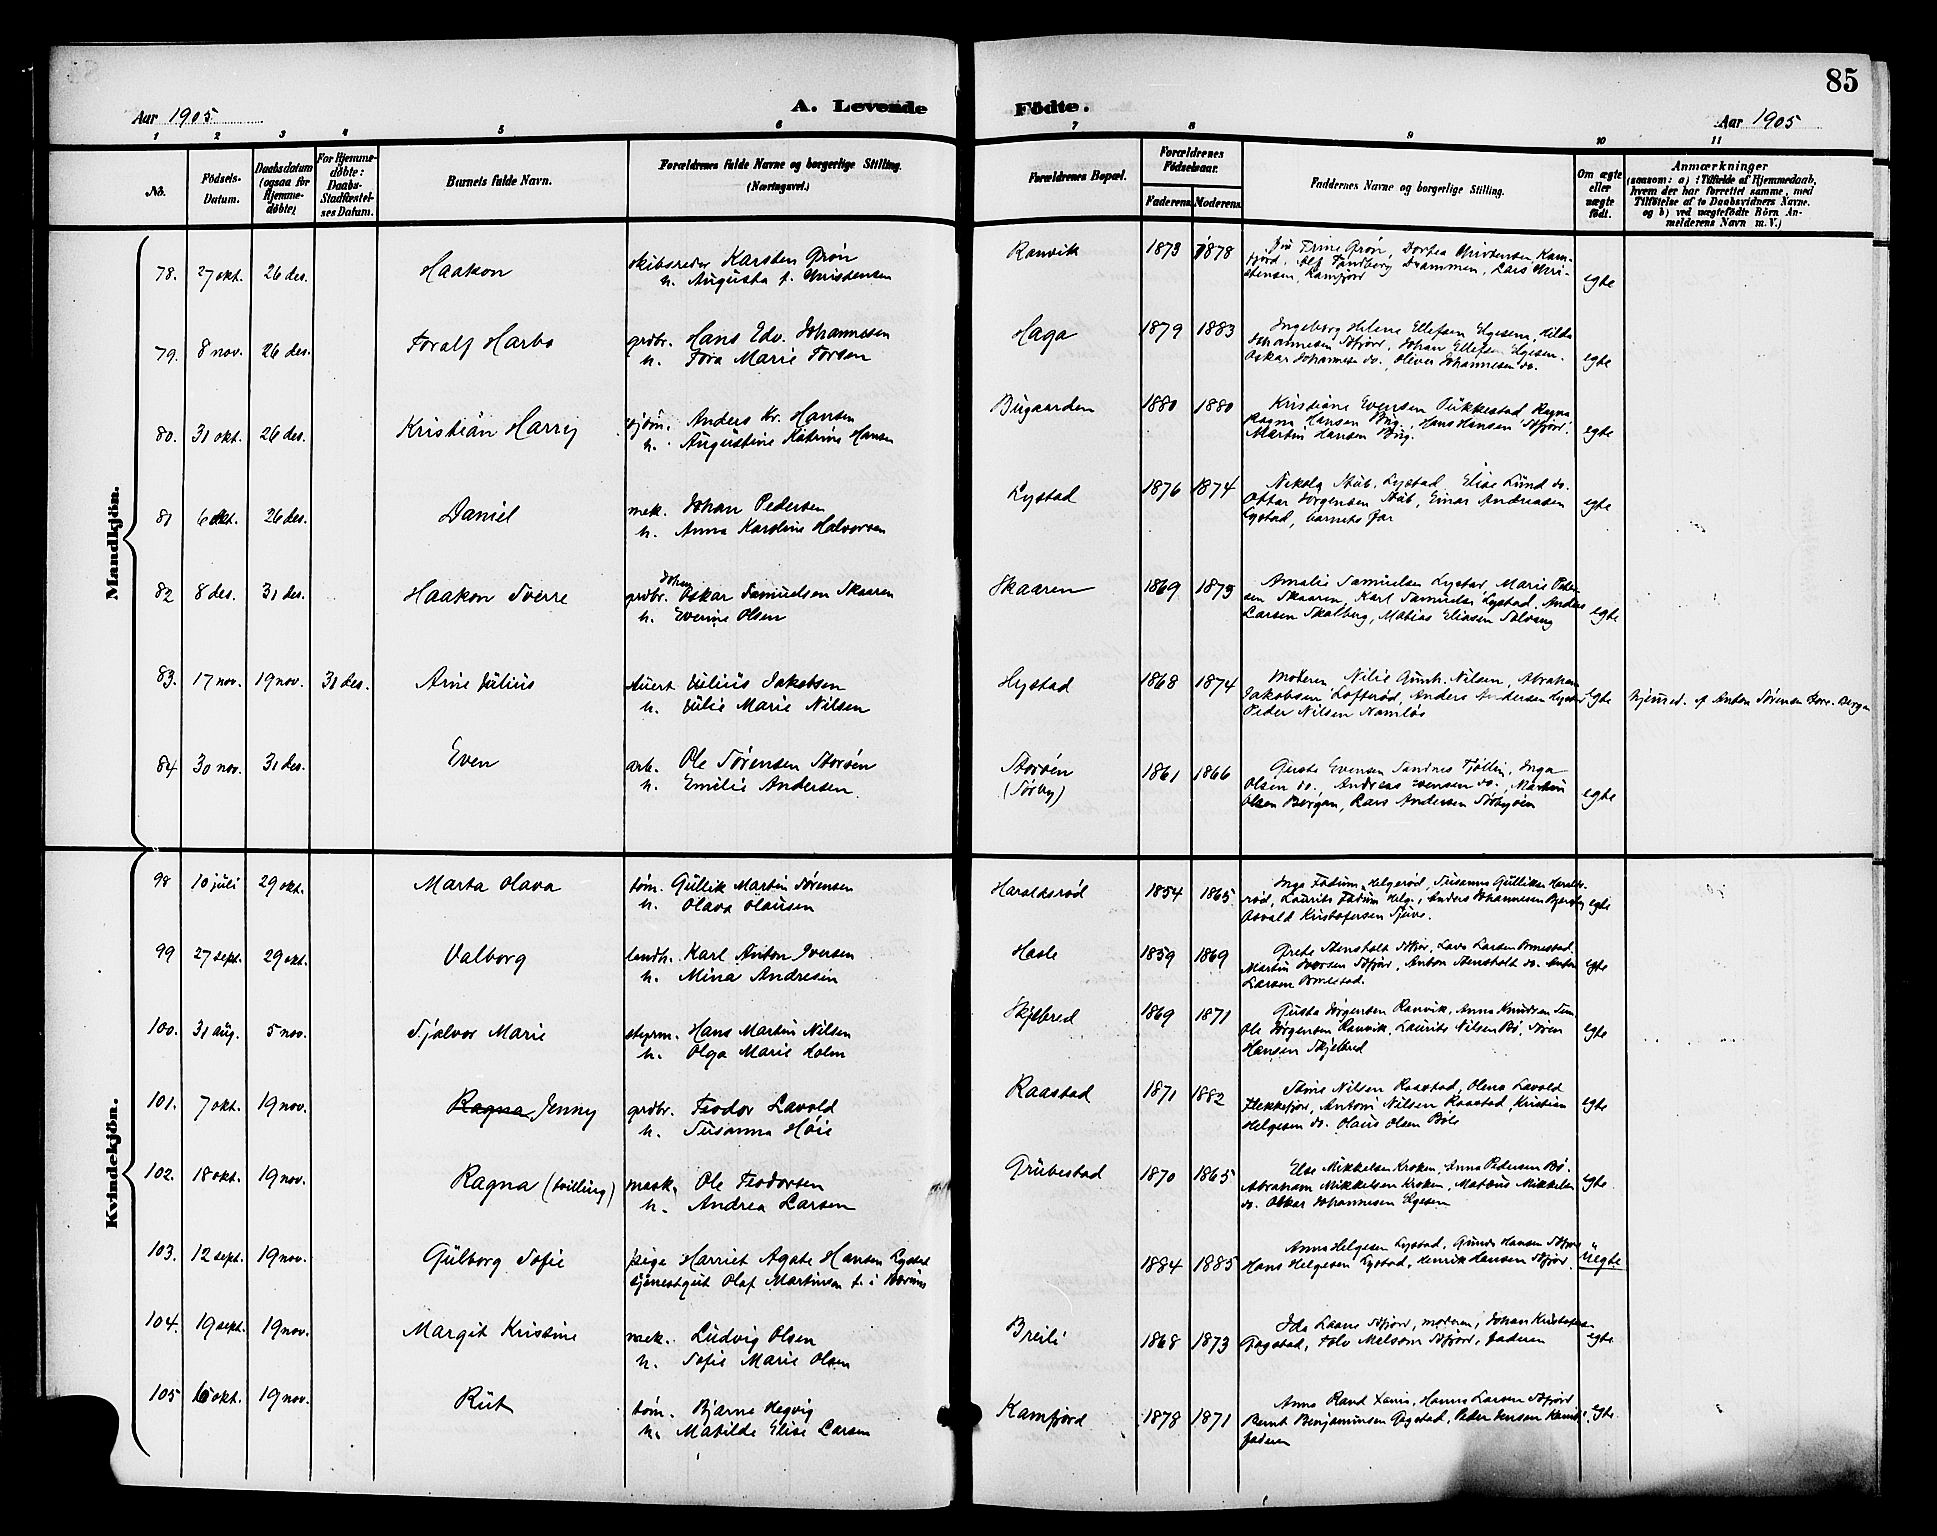 85
Aar 1905
A. Levende
Födte.
Aar 1905
1 2 3 4 5 6 7 8 9 10 11
No.
Födsels-
Datum.
Daabsdatum
(ogsaa for
Hjemme-
døbte)
For Hjemme-
døbte:
Daabs-
Stadfæstel-
ses Datum.
Barnets fulde Navn.
Forældrenes fulde Navne og borgerlige Stilling.
(Næringsvei.)
Forældrenes Bopæl.
Forældrenes
Födselsaar.
Faderens Moderens
Faddernes Navne og borgerlige Stilling.
Om ægte
eller
uægte
födt.
Anmærkninger
(saasom: a) i Tilfælde af Hjemmedaab,
hvem der har forrettet samme, med
Tilföielse af to Daabsvidners Navne.
og b) ved uægtefödte Börn An-
melderens Navn m. V.)
Mandkjön.
78. 27 okt. 26 des. Haakon
skibsreder Karsten Grøn
h. Augusta f. Christensen
Ranvik 1873 1878
Trine Grøn, Dortea Christensen, Kam-
fjord, Drammen, Lars Chri-
stensen, Kamfjord
egte
79. 8 nov. 26 des. Toralf Harbo
grdbr. Hans Edv. Johannesen
h. Tora Marie Torsen
Haga 1879 1883
Ingeborg Helene Ellefsen Elgesem, Hilda
Johannesen Sfjord, Johan Ellefsen Elgesem.
Oskar Johannesen do., Oliver Johannesen do.
egte
80. 31 okt. 26 des. Kristian Harry
sjøm. Anders Kr. Hansen
h. Augustine Katrine Hansen
Bugaarden 1880 1880
Kristiane Evensen Pukkestad Ragna
Ragna Hansen Bug., Hans Hansen Sfjord.
Martin Hansen Bug.
egte
81 6 okt. 26 des. Daniel
mek. Johan Pedersen
h. Anna Karoline Halvorsen
Lystad 1876 1874
Nikola Stub, Lystad, Elise Lund do.
Ottar Jørgensen Stub, Einar Andreasen
Lystad, barnets far
egte
82 8 des. 31 des. Haakon Sverre
Johan
grdbr. Oskar Samuelsen Skaaren
h. Everine Olsen
Skaaren 1869 1875
Amalie Samuelsen Lystad, Marie Peder-
sen Skaaren, Karl Samuelsen Lystad, Anders
Larsen Skalberg, Matias Eliasen Solvang
egte
83. 17 nov. 19 nov. 31 des. Arne Julius
Julius Jakobsen
h. Julie Marie Nilsen
Hystad 1868 1874
Moderen Nilie Gunh. Nilsen, Abraham
Jakobsen Lofterød, Anders Andersen Hystad
Peder Nilsen Namløs
egte
hjemmed. af Anton Sørensen Bergan
84 30 nov. 31 des. Even
arb. Ole Sørensen Storøen
h. Emilie Andersen.
Storøen
(Sørby)
1861 1866
Guste Evensen Sandnes Tjølling, Inga
Olsen do., Andreas Evensen do., Martin
Olsen Bergan, Lars Andersen Sørbyøen
egte
Kvindekjön.
98 10 juli 29 okt. Marta Olava
tøm. Gullik Martin Sørensen
h. Olava Olausen
Haraldsrød 1854 1865
Inga Fadum Helgerød, Susanna Gulliksen Haralds-
rød, Laurits Fadum Helg., Anders Johannesen Bjerkby
Osvald Kristofersen Tjuve.
egte
99 27 sept. 29 okt. Valborg
landh. Karl Anton Iversen
h. Mina Andresen
Hasle 1859 1869
Grete Stensholt Sfjor, Lava Larsen Ormestad
Martin Iversen Sfjor, Anton Stensholt do. Anton
Larsen Ormestad.
egte
100. 31 aug. 5 nov. Tjalvor Marie
styrm. Hans Martin Nilsen
h. Olga Marie Holm
Skjelbred 1869 1871
Gusta Jørgensen Ranvik, Anna Knudsen
Ole Jørgensen Ranvik, Laurits Nilsen Bø, Søren
Hansen Skjelbred
egte
101. 7 okt. 19 nov. Ragna Jenny
grdbr. Teodor Lavold
h. Susanna Høie
Raastad 1871 1882
Stine Nilsen Raastad, Olena Lavold
Flekkefjor, Antoni Nilsen Raastad, Kristian
Helgesen do. Olaus Olsen Bøle
egte
102. 18 okt. 19 nov. Ragna (tvilling)
mask. Ole Teodorsen
h. Andrea Larsen
Grubestad 1870 1865
Else Mikkelsen Kroken, Anna Pedersen Bø.
Abraham Mikkelsen Kroken, Mateus Mikkelsen
do. Oskar Johannesen Elgesem
egte
103. 12 sept. 19 nov. Gulborg Sofie
pige Harriet Agate Hansen Lystad
tjenestgut Olaf Martinsen
1884 1885
Anna Helgesen Lystad, Gunda Hansen Sfjor
Hans Helgesen Lystad, Henrik Hansen Sfjord.
uegte
104. 19 sept. 19 nov. Margit Kristine
mek. Ludvig Olsen
h. Sofie Marie Olsen
Breili 1868 1873
Ida Laane Sfjord, moderen, Johan Kristofersen
Gogstad, Tolv Melsom Sfjord, faderen
egte
105 6 okt. 19 nov. Rut
tøm. Bjarne Hegvig
h. Matilde Elise Larsen
Kamfjord 1878 1871
Anna Rand, Hanna Larsen Sfjord
Bernt Benjaminsen Gogstad, Peder Jensen Kamf.
faderen
egte